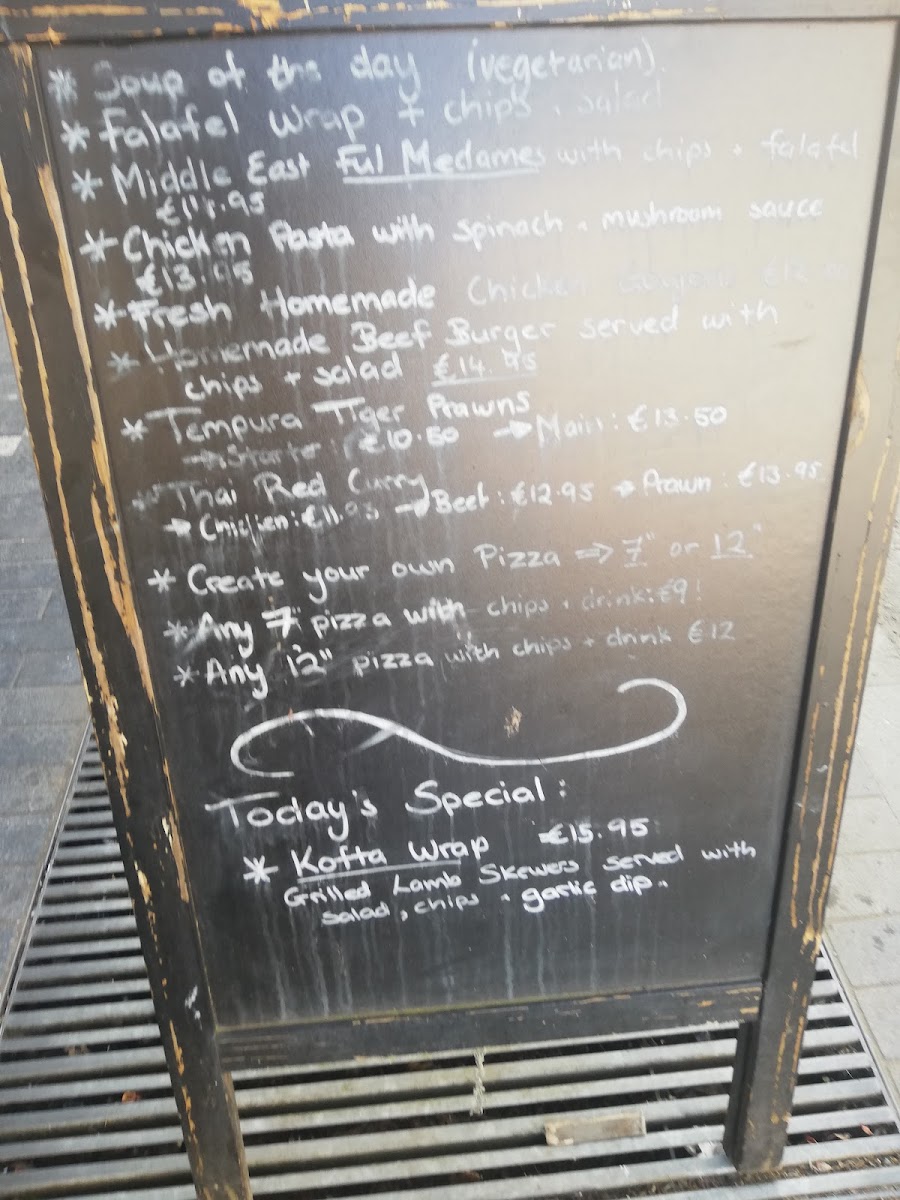 * Soup of the day (vegetarian)
* Falafel Wrap + chips + salad
* Middle East Ful Medames with chips + falafel
* Chicken Pasta with spinach + mushroom sauce
€13.95
* Fresh Homemade Chicken
* Homemade Beef Burger served with
chips + salad €14.95
* Tempura Tiger Prawns
→ Starter: €10.50 → Main: €13.50
* Thai Red Curry
→ Chicken: €11.95 → Beef: €12.95 → Prawn: €13.95
* Create your own Pizza ⇒ 7" or 12"
* Any 7" pizza with chips + drink: €9!
* Any 12" pizza with chips + drink €12
Today's Special:
* Kofta Wrap €15.95
Grilled Lamb Skewers served with
salad, chips + garlic dip.